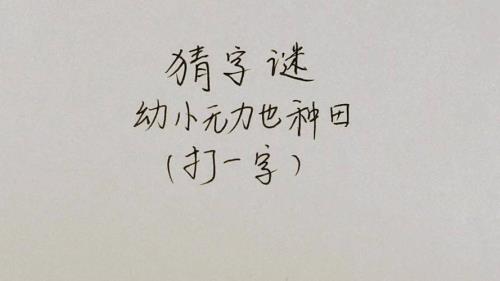 猜字谜
幼小无力也种田
(打一字)